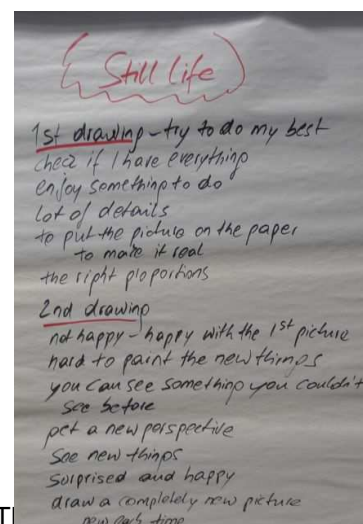 Still life
1st drawing - try to do my best
check if I have everything
enjoy something to do
lot of details
to put the picture on the paper
to make it real
the right proportions
2nd drawing
not happy - happy with the 1st picture
hard to paint the new things
you can see something you couldn't
see before
get a new perspective
see new things
surprised and happy
draw a completely new picture
new each time